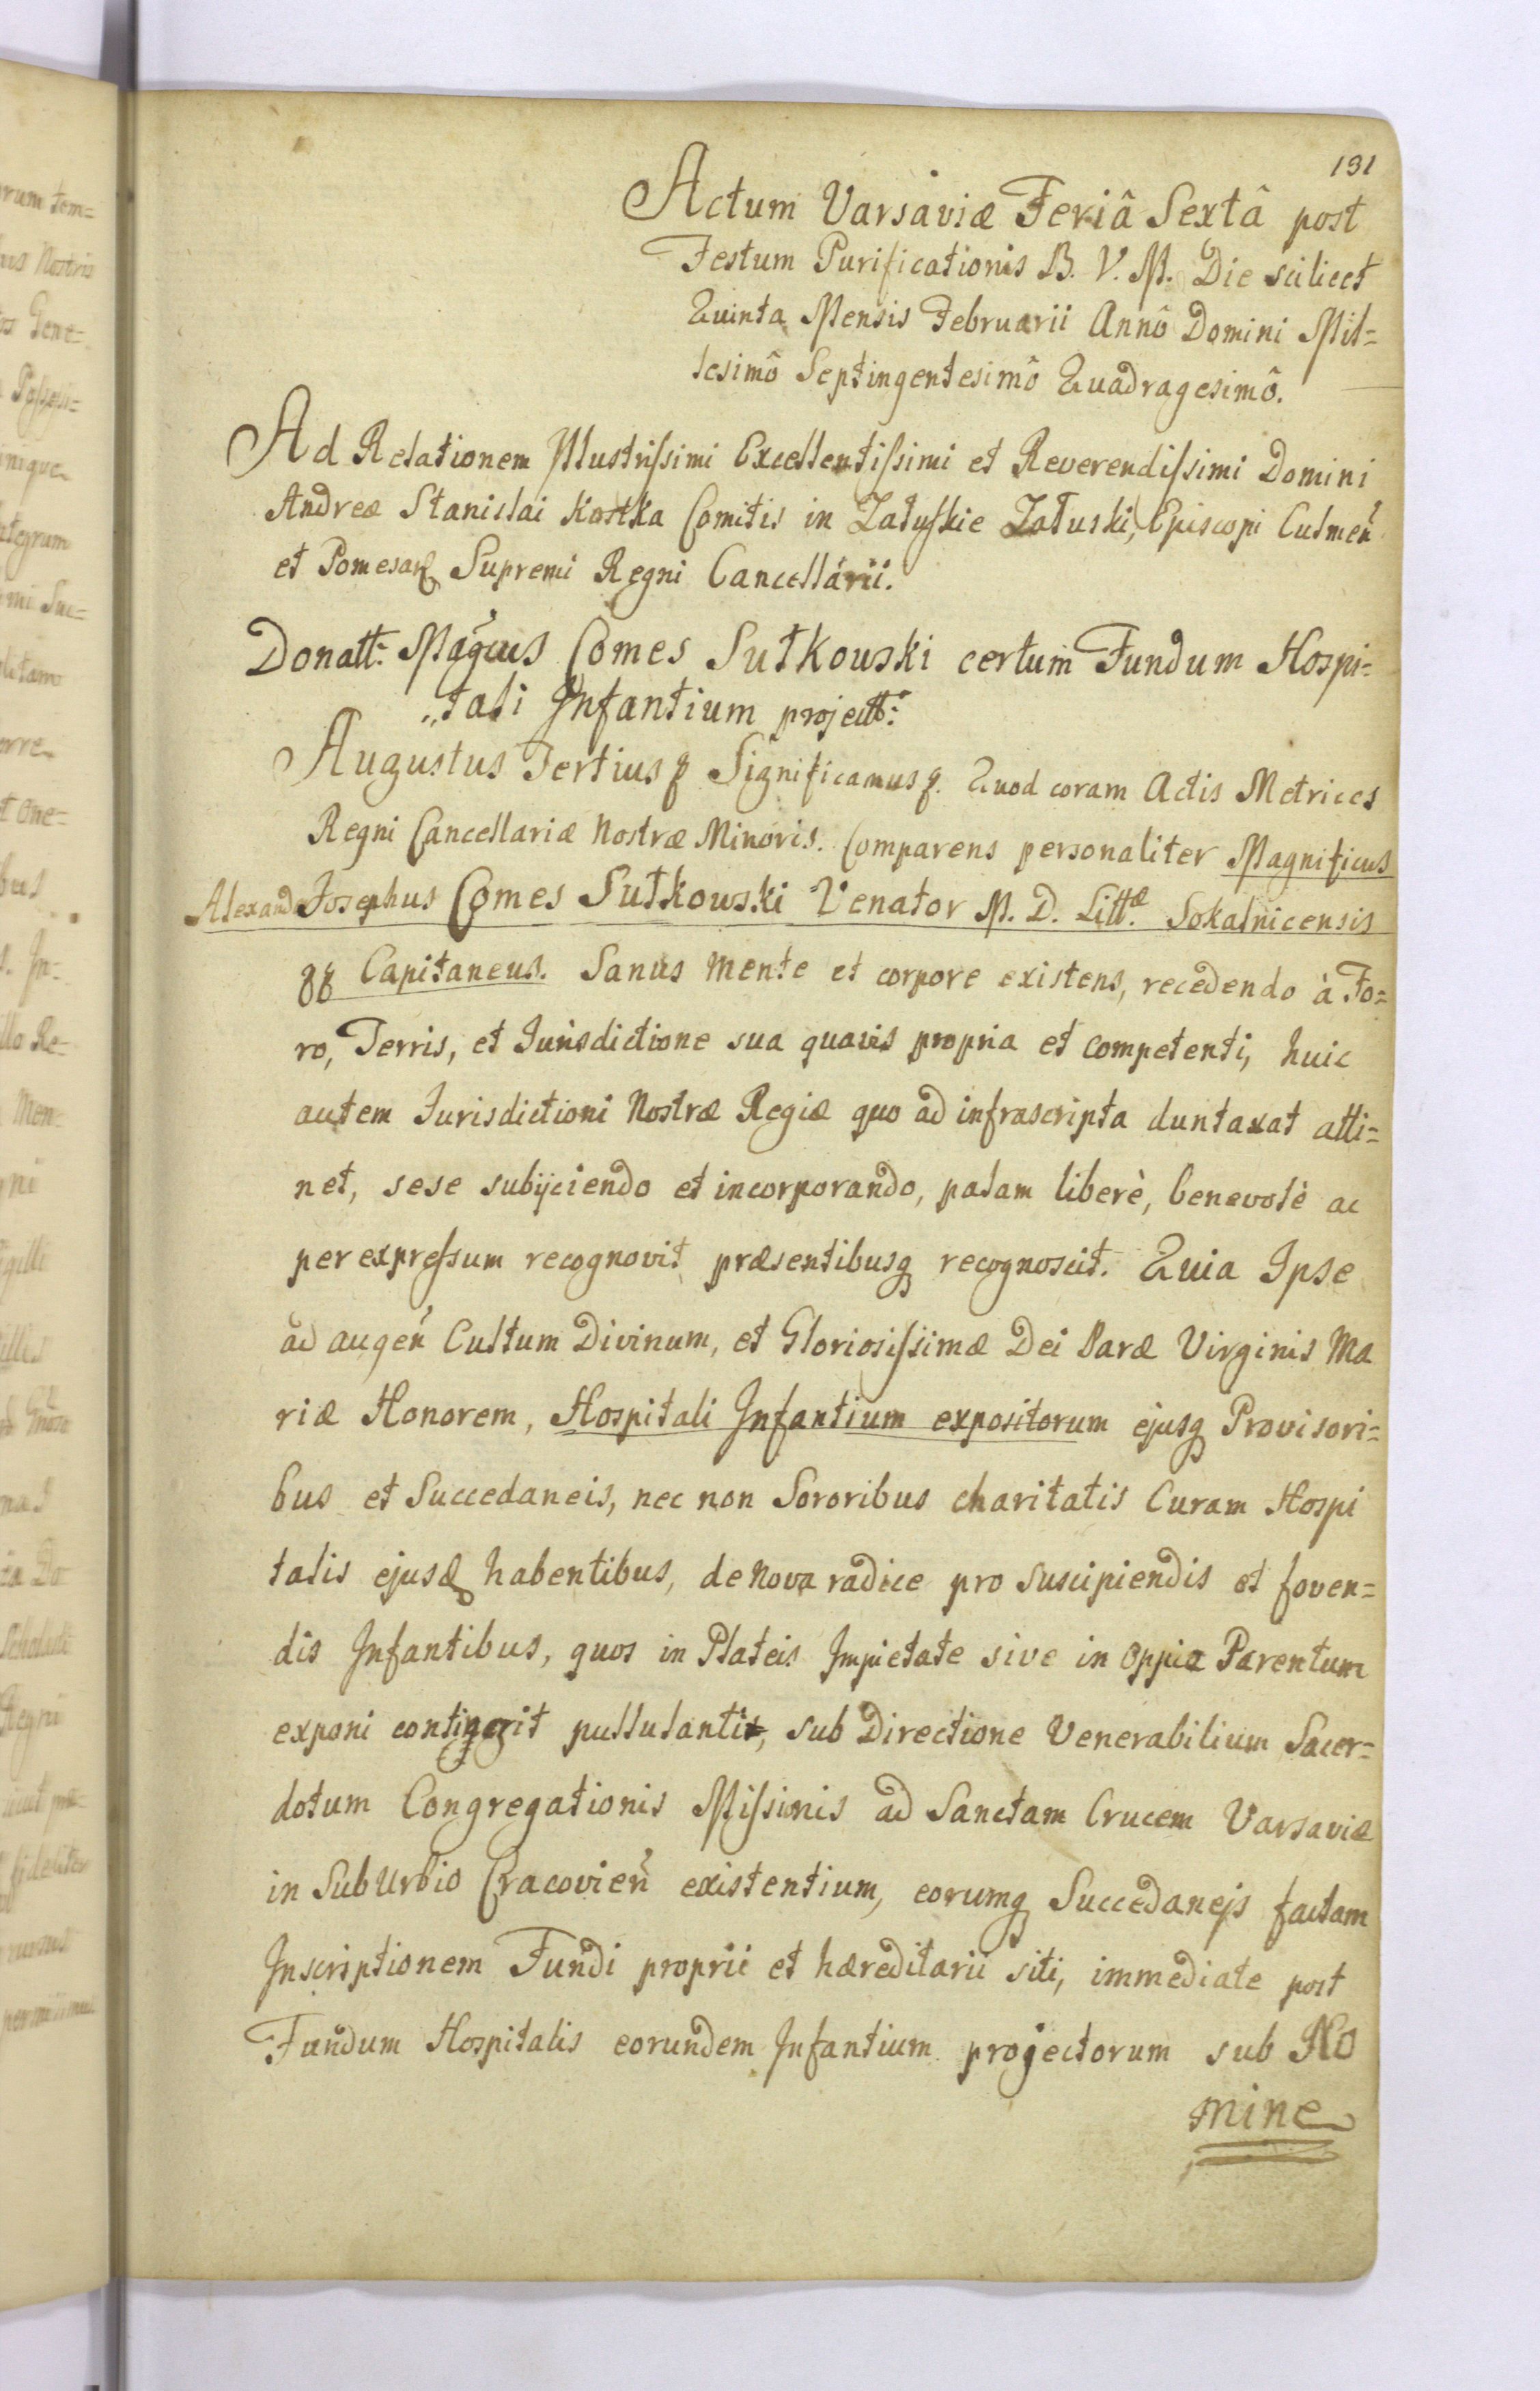 131
Actum Varsaviæ Feriâ Sextâ post
Festum Purificationis B. V. M. Die scilicet
Quinta Mensis Februarii Annô Domini Mil=
lesimô Septingentesimô Quadragesimô.
Ad Relationem Illustrissimi Excellentissimi et Reverendissimi Domini
Andreæ Stanislai Kostka Comitis in Załuskie Załuski, Episcopi Culmeñ
et Pomesaņ Supremi Regni Cancellarii.
Donatt: Mağcus Comes Sułkowski certum Fundum Hospi=
„tali Infantium projectt:
Augustus Tertius ꝑ Significamus ꝑ. Quod coram Actis Metrices
Regni Cancellariæ Nostræ Minoris. Comparens personaliter Magnificus
Alexand Josephus Comes Sułkowski Venator M. D. Littæ. Sokalnicensis
Capitaneus. Sanus mente et corpore existens, recedendo à Fo=
ro, Terris, et Jurisdictione sua quavis propria et competenti, huic
autem Jurisdictioni Nostræ Regiæ quo ad infrascripta duntaxat atti=
net, sese subijciendo et incorporando, palam liberè, benevolè ac
per expressum recognovit præsentibusq recognoscit. Quia Ipse
ad augeñ Cultum Divinum, et Gloriosissimæ Dei Paræ Virginis Ma
riæ Honorem, Hospitali Infantium expositorum ejusq Provisori=
bus et Succedaneis, nec non Sororibus charitatis Curam Hospi
talis ejusđ habentibus, de Nova radice pro suscipiendis et foven=
dis Infantibus, quos in Plateis Impietate sive inoppia Parentum
exponi contigerit pullulantis, sub Directione Venerabilium Sacer=
dotum Congregationis Missionis ad Sanctam Crucem Varsaviæ
in SubUrbio Cracovieñ existentium, eorumq Succedanejs factam
Inscriptionem Fundi proprii et hæreditarii siti, immediate post
Fundum Hospitalis eorundem Infantium projectorum sub No
mine